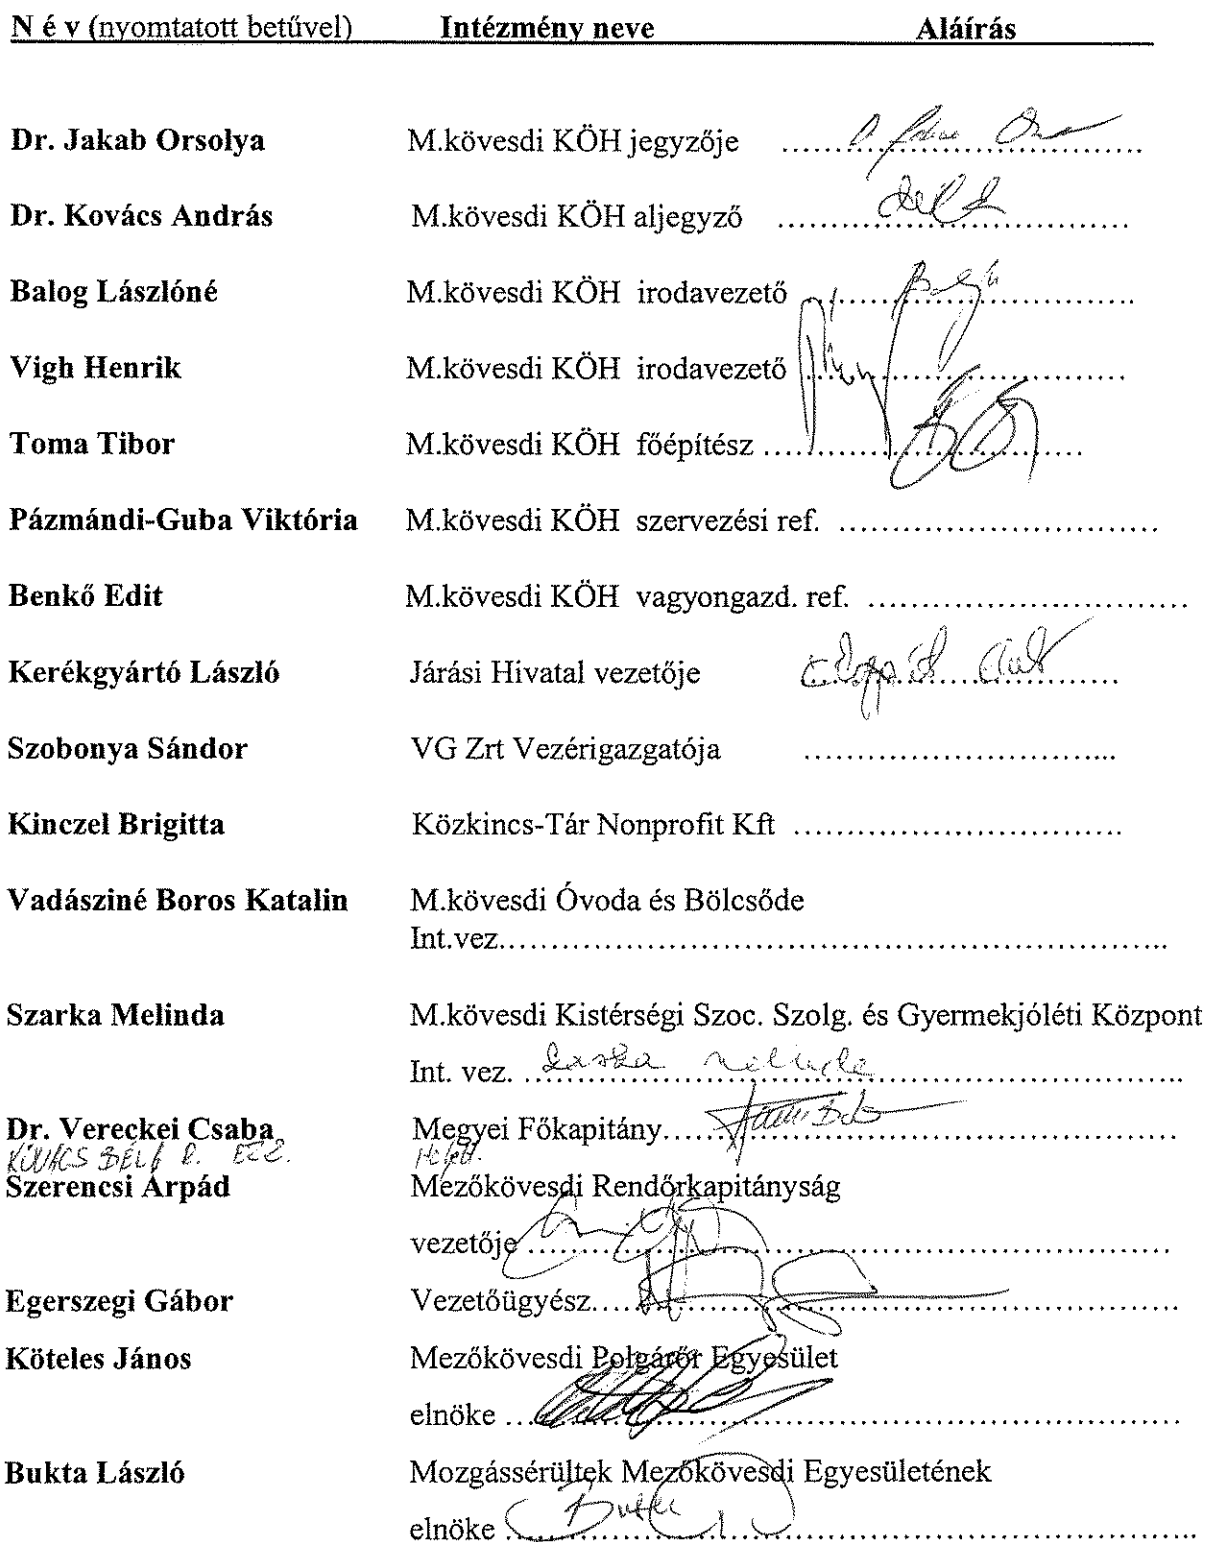 N é v (nyomtatott betűvel) Intézmény neve Aláírás
Dr. Jakab Orsolya M.kövesdi KÖH jegyzője ..............................
Dr. Kovács András M.kövesdi KÖH aljegyző ..............................
Balog Lászlóné M.kövesdi KÖH irodavezető ..............................
Vigh Henrik M.kövesdi KÖH irodavezető ..............................
Toma Tibor M.kövesdi KÖH főépítész ..............................
Pázmándi-Guba Viktória M.kövesdi KÖH szervezési ref. ..............................
Benkő Edit M.kövesdi KÖH vagyongazd. ref. ..............................
Kerékgyártó László Járási Hivatal vezetője ..............................
Szobonya Sándor VG Zrt Vezérigazgatója ..............................
Kinczel Brigitta Közkincs-Tár Nonprofit Kft ..............................
Vadásziné Boros Katalin M.kövesdi Óvoda és Bölcsőde
Int.vez..............................
Szarka Melinda M.kövesdi Kistérségi Szoc. Szolg. és Gyermekjóléti Központ
Int. vez. ..............................
Dr. Vereckei Csaba Megyei Főkapitány..............................
KOVÁCS BÉLA R. EZ. helyett.
Szerencsi Árpád Mezőkövesdi Rendőrkapitányság
vezetője ..............................
Egerszegi Gábor Vezetőügyész..............................
Köteles János Mezőkövesdi Polgárőr Egyesület
elnöke ..............................
Bukta László Mozgássérültek Mezőkövesdi Egyesületének
elnöke ..............................